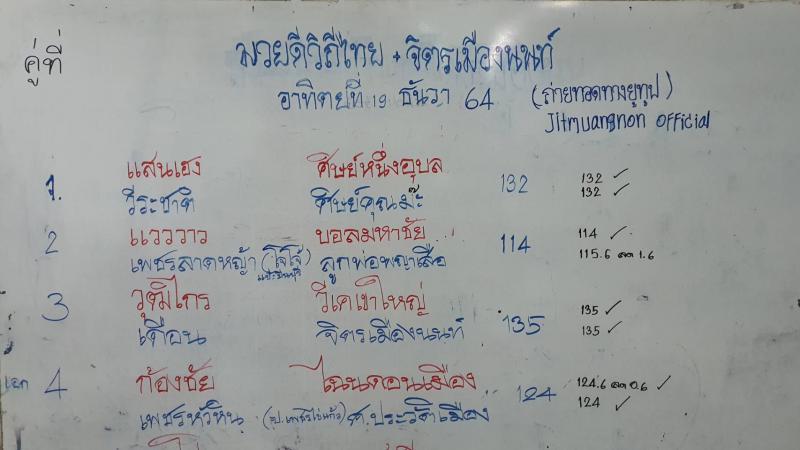 คู่ที่
มวยดีวิถีไทย + จิตรเมืองนนท์
อาทิตย์ที่ 19 ธันวา 64 (ถ่ายทอดทางยูทูป)
Jitmuangnon official
1. แสนเฮง ศิษย์หนึ่งอุบล 132 132 ✓
วีระชาติ ศิษย์คุณม๊ะ 132 ✓
2 แวววาว บอสมหาชัย 114 114 ✓
เพชรลาดหญ้า (โจโจ้) ลูกพ่อพญาเสือ 115.6 ลด 1.6
3 วุฒิไกร วีเคเขาใหญ่ 135 135 ✓
เดือน จิตรเมืองนนท์ 135 ✓
เอก 4 ก้องชัย ไฉนดอนเมือง 124 124.6 ลด 0.6 ✓
เพชรหัวหิน ศ.ประวัติเมือง 124 ✓